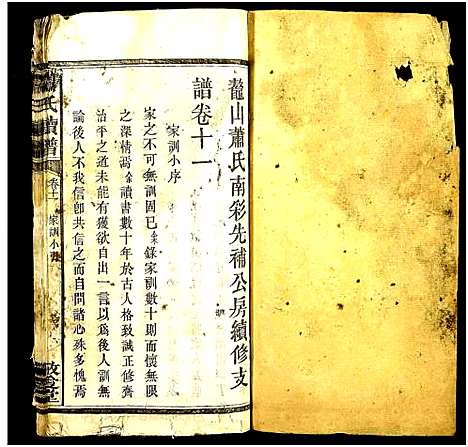 鼇山蕭氏南彩先補公房續修支
譜卷十一
家訓小序
家之不可無訓固已余錄家訓數十則而懷無限
之深情焉余讀書數十年於古人格致誠正修齊
治平之道未能有獲欲自出一言以為後人訓無
論後人不我信卽共信之而自問諸心殊多愧焉
氏續譜
卷十一
家訓小序